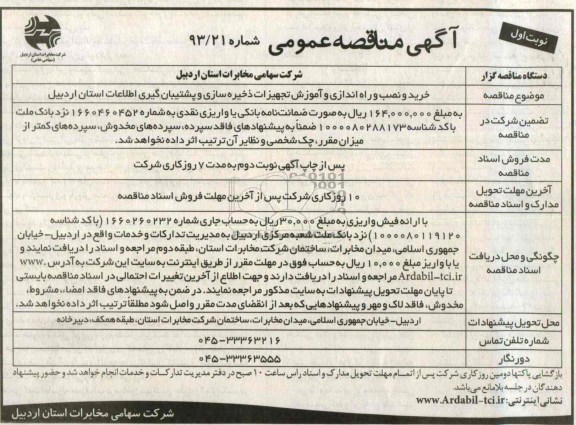 نوبت اول
آگهی مناقصه عمومی شماره ۹۳/۲۱
شرکت مخابرات استان اردبیل
(سهامی خاص)
دستگاه مناقصه گزار
شرکت سهامی مخابرات استان اردبیل
موضوع مناقصه
خرید و نصب و راه اندازی و آموزش تجهیزات ذخیره سازی و پشتیبان گیری اطلاعات استان اردبیل
تضمین شرکت در
مناقصه
به مبلغ ۱۶۴,۰۰۰,۰۰۰ ریال به صورت ضمانت نامه بانکی یا واریزی نقدی به شماره ۱۶۶۰۴۶۰۴۵۲ نزد بانک ملت
با کد شناسه ۱۰۰۰۰۸۰۲۸۸۱۷۳ ضمناً به پیشنهادهای فاقد سپرده، سپرده‌های مخدوش، سپرده‌های کمتر از
میزان مقرر، چک شخصی و نظایر آن ترتیب اثر داده نخواهد شد.
مدت فروش اسناد
مناقصه
پس از چاپ آگهی نوبت دوم به مدت ۷ روز کاری شرکت
آخرین مهلت تحویل
مدارک و اسناد مناقصه
۱۰ روز کاری شرکت پس از آخرین مهلت فروش اسناد مناقصه
چگونگی و محل دریافت
اسناد مناقصه
با ارائه فیش واریزی به مبلغ ۳۰,۰۰۰ ریال به حساب جاری شماره ۱۶۶۰۲۶۰۲۳۲ (با کد شناسه
۱۰۰۰۰۸۰۱۱۹۱۲۰) نزد بانک ملت شعبه مرکزی اردبیل به مدیریت تدارکات و خدمات واقع در اردبیل- خیابان
جمهوری اسلامی، میدان مخابرات، ساختمان شرکت مخابرات استان، طبقه دوم مراجعه و اسناد را دریافت نمایند و
یا با واریز مبلغ ۱۰,۰۰۰ ریال به حساب فوق در مهلت مقرر از طریق اینترنت به سایت این شرکت به آدرس www.
Ardabil-tci.ir مراجعه و اسناد را دریافت دارند و جهت اطلاع از آخرین تغییرات احتمالی در اسناد مناقصه بایستی
تا پایان مهلت تحویل پیشنهادات به سایت مذکور مراجعه نمایند. در ضمن به پیشنهادهای فاقد امضاء، مشروط،
مخدوش، فاقد لاک و مهر و پیشنهادهایی که بعد از انقضای مدت مقرر واصل شود مطلقاً ترتیب اثر داده نخواهد شد.
محل تحویل پیشنهادات
اردبیل- خیابان جمهوری اسلامی، میدان مخابرات، ساختمان شرکت مخابرات استان، طبقه همکف، دبیرخانه
شماره تلفن تماس
۰۴۵-۳۳۳۶۳۲۱۶
دورنگار
۰۴۵-۳۳۳۶۳۵۵۵
بازگشایی پاکتها دومین روز کاری شرکت پس از اتمام مهلت تحویل مدارک و اسناد راس ساعت ۱۰ صبح در دفتر مدیریت تدارکات و خدمات انجام خواهد شد و حضور پیشنهاد
دهندگان در جلسه بلامانع می باشد.
نشانی اینترنتی: www.Ardabil-tci.ir
شرکت سهامی مخابرات استان اردبیل